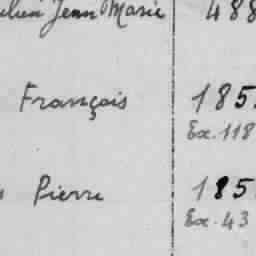 Jean Marie 488
François 185
Ex. 118
Pierre 185
Ex. 43